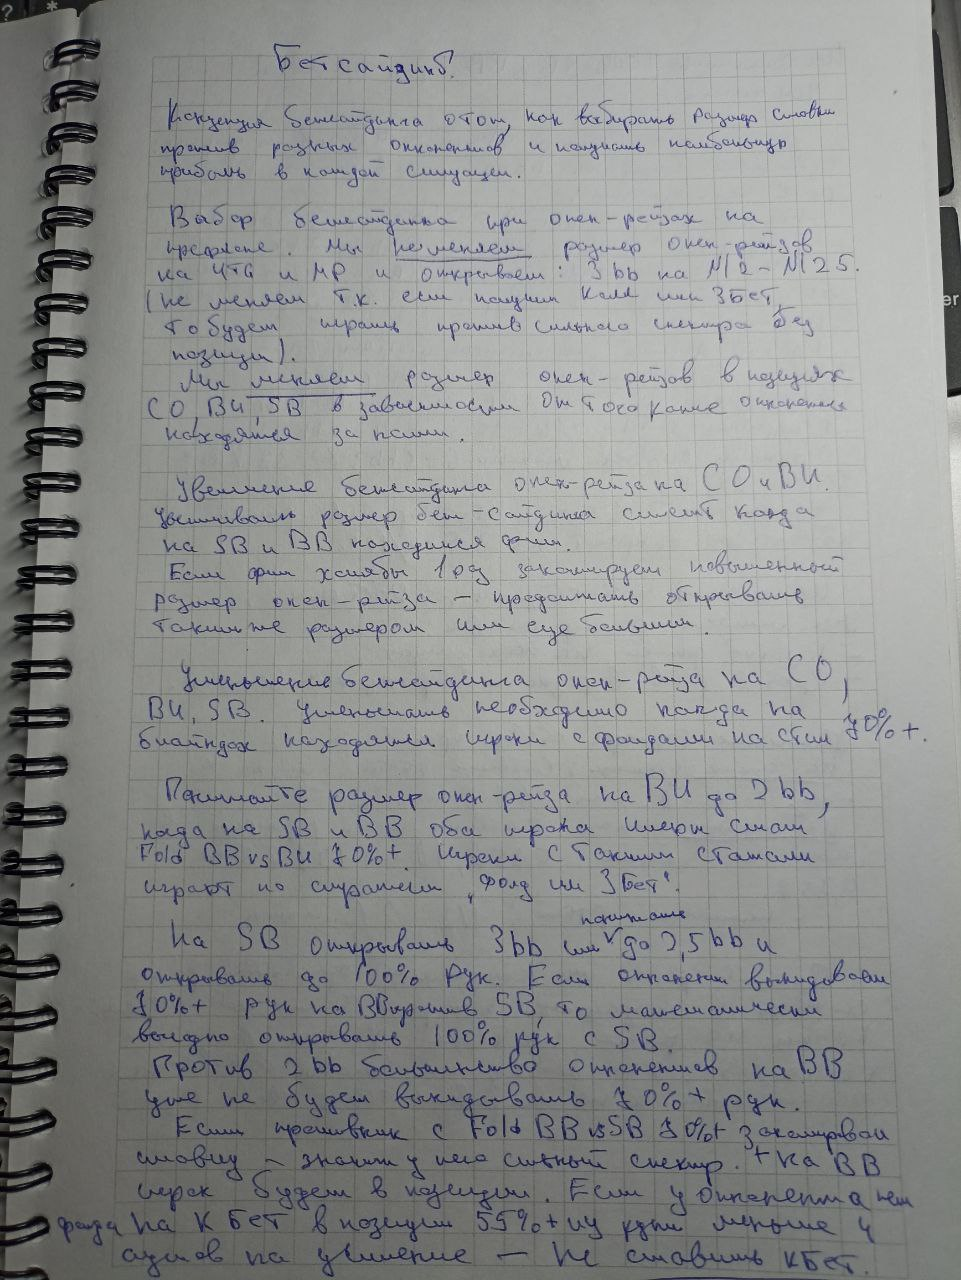 Бетсайдинг.
Концепция бетсайдинга о том, как выбирать размер ставки
против разных оппонентов и получать наибольшую
прибыль в каждой ситуации.
Выбор бетсайдинга при опен-рейзах на
префлопе. Мы не меняем размер опен-рейзов
на UTG и MP и открываем: 3bb на Nl2-Nl25.
(не меняем т.к. если получим колл или 3Бет,
то будем играть против сильного спектра без
позиции).
Мы меняем размер опен-рейзов в позициях
CO, BU, SB в зависимости от того какие оппоненты
находятся за нами.
Увеличение бетсайдинга опен-рейза на CO и BU.
Увеличивать размер бет-сайдинга стоит когда
на SB и BB находится фиш.
Если фиш хотябы 1 раз заколлирует повышенный
размер опен-рейза – продолжать открывать
таким же размером или еще большим.
Уменьшение бетсайдинга опен-рейза на CO,
BU, SB. Уменьшать необходимо когда на
блайндах находятся игроки с фолдами на стил 70%+.
Понижайте размер опен-рейза на BU до 2bb,
когда на SB и BB оба игрока имеют статы
Fold BB vs BU 70%+. Игроки с такими статами
играют по стратегии "фолд или 3Бет".
На SB открывать 3bb или понижать до 2,5bb и
открывать до 100% рук. Если оппонент выкидывает
70%+ рук на BB против SB, то математически
выгодно открывать 100% рук с SB.
Против 2bb большинство оппонентов на BB
уже не будет выкидывать 70%+ рук.
Если противник с Fold BB vs SB 70%+ заколлировал
ставку – значит у него сильный спектр. + На BB
игрок будет в позиции. Если у оппонента нет
фолда на к Бет в позиции 55%+ и у руки меньше 4
аутов на усиление – не ставить кБет.